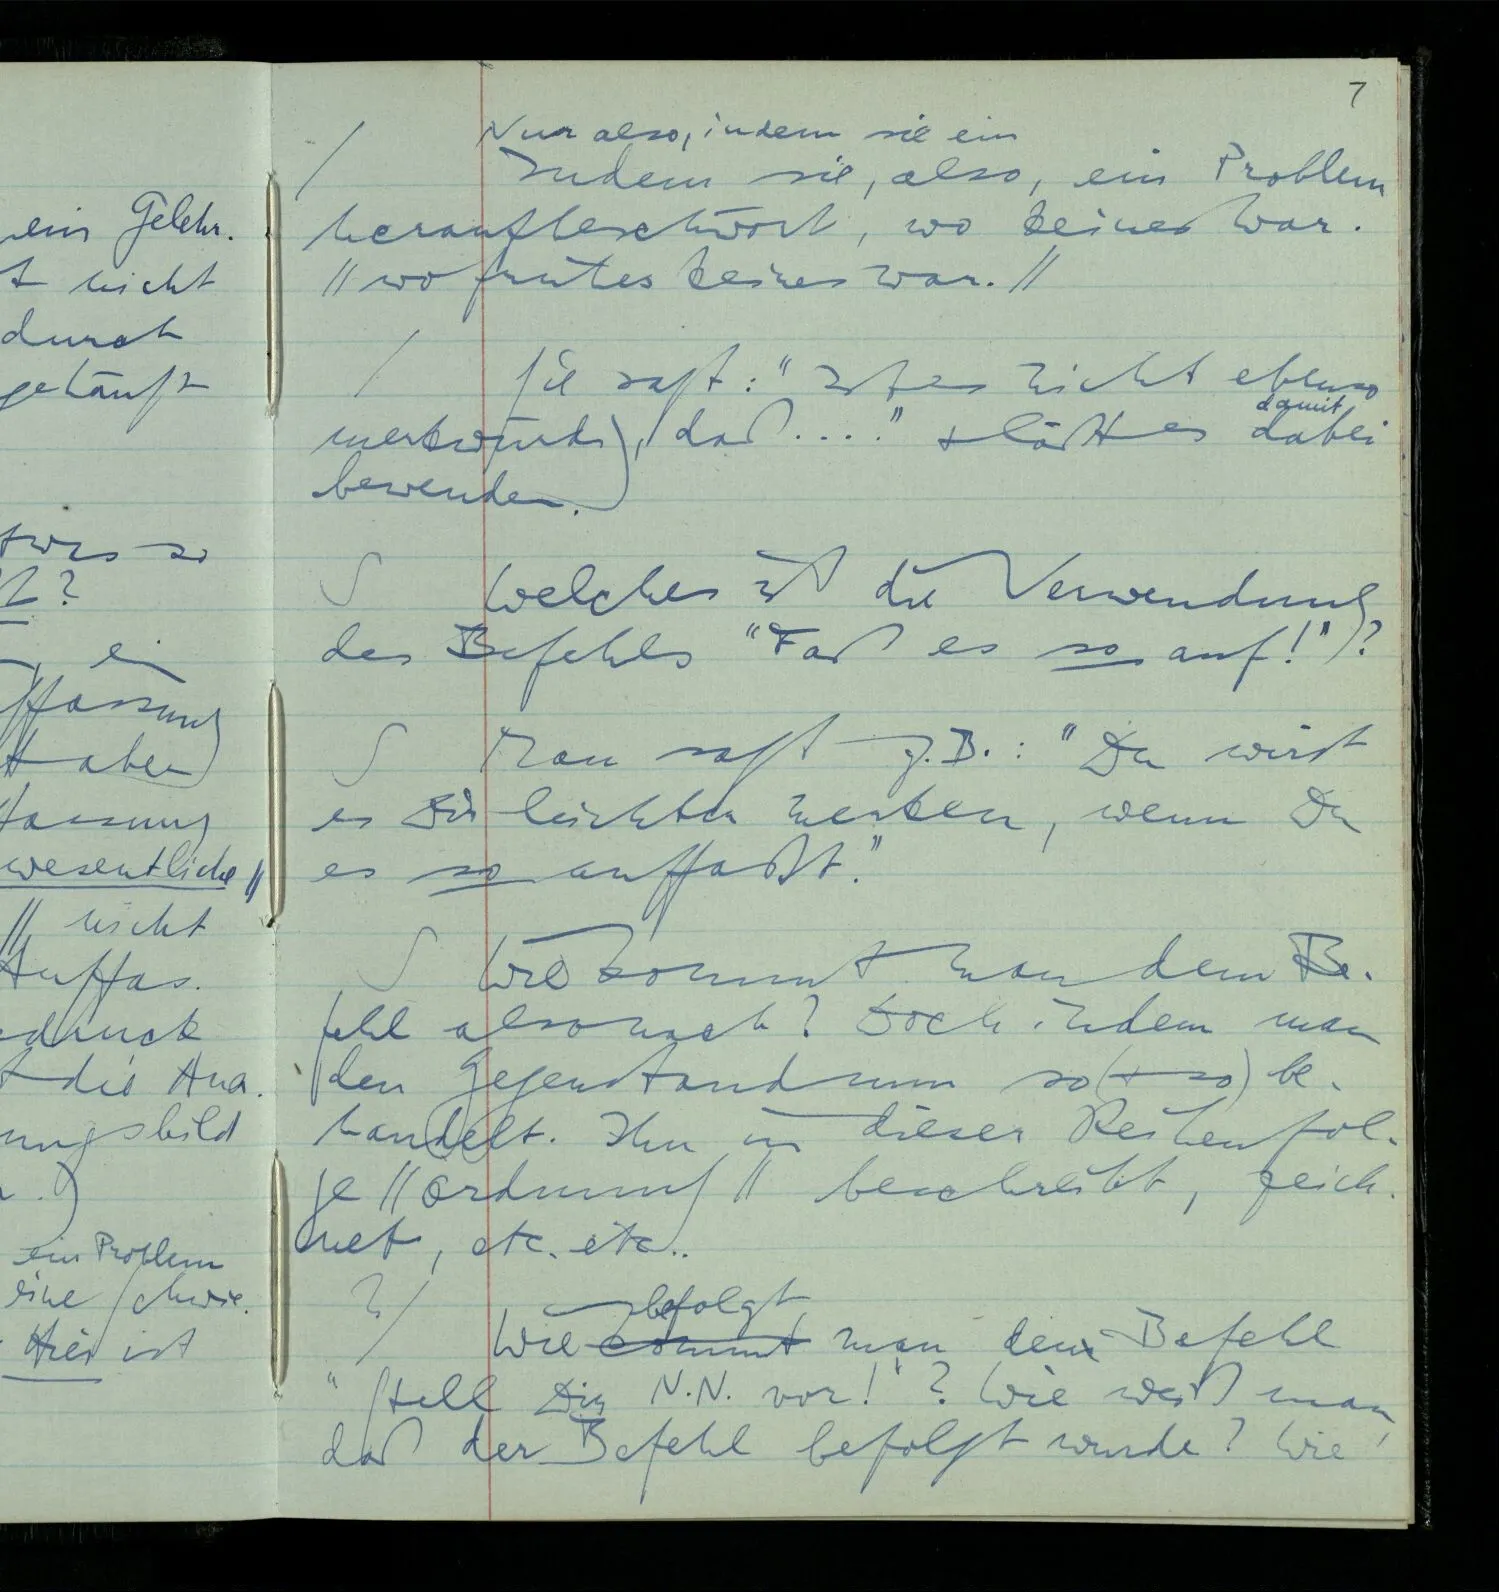 ein Gelehr-
nicht
durch
gehäuft
etwas so
?
ein
ffassung
aber
fassung
wesentliche //
// nicht
Auffas-
druck
die Ana-
ungsbild
ein Problem
eine Schwie-
Hier ist
7
/ Nur also, indem sie ein
Indem sie, also, ein Problem
heraufbeschwört, wo keines war.
// wo früher keines war. //
/ Sie sagt: "Ist es nicht ebenso
damit
merkwürdig, daß ...." & läßt es dabei
bewenden.
∫ Welches ist die Verwendung
des Befehls "Faß es so auf!")?
∫ Man sagt z.B.: "Du wirst
es Dir leichter merken, wenn Du
es so auffaßt."
∫ Wie kommt man dem Be-
fehl also nach? Doch indem man
den Gegenstand nun so (& so) be-
handelt. Ihn in dieser Reihenfol-
ge // Ordnung // beschreibt, zeich-
net, etc. etc..
? / befolgt
Wie kommt man dem Befehl
"Stell Dir N.N. vor!"? Wie weiß man,
daß der Befehl befolgt wurde? Wie